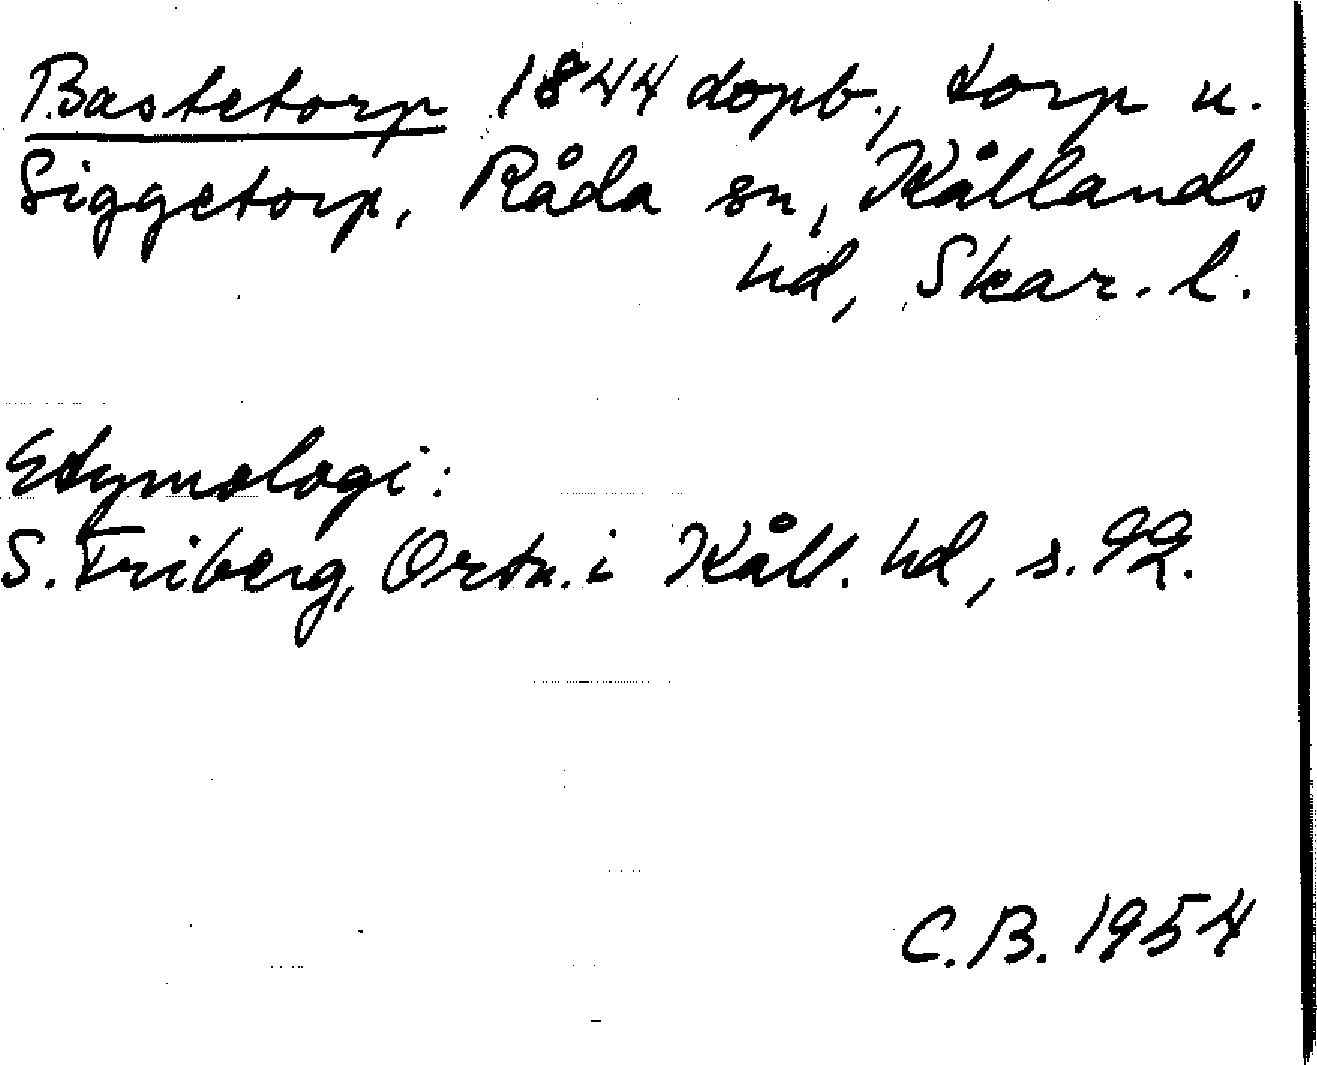 Bastetorp 1844 dopb., torp u.
Siggetorp, Råda sn, Kållands
hd, Skar. l.
Etymologi:
S. Triberg, Ortn. i Kåll. hd, s. 92.
C.B. 1954